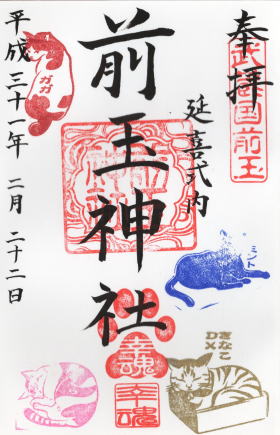 奉拝
武蔵国前玉
延喜式内
前玉神社
幸魂
平成三十一年 二月 二十二日
ガガ
ミント
きなこ
DX